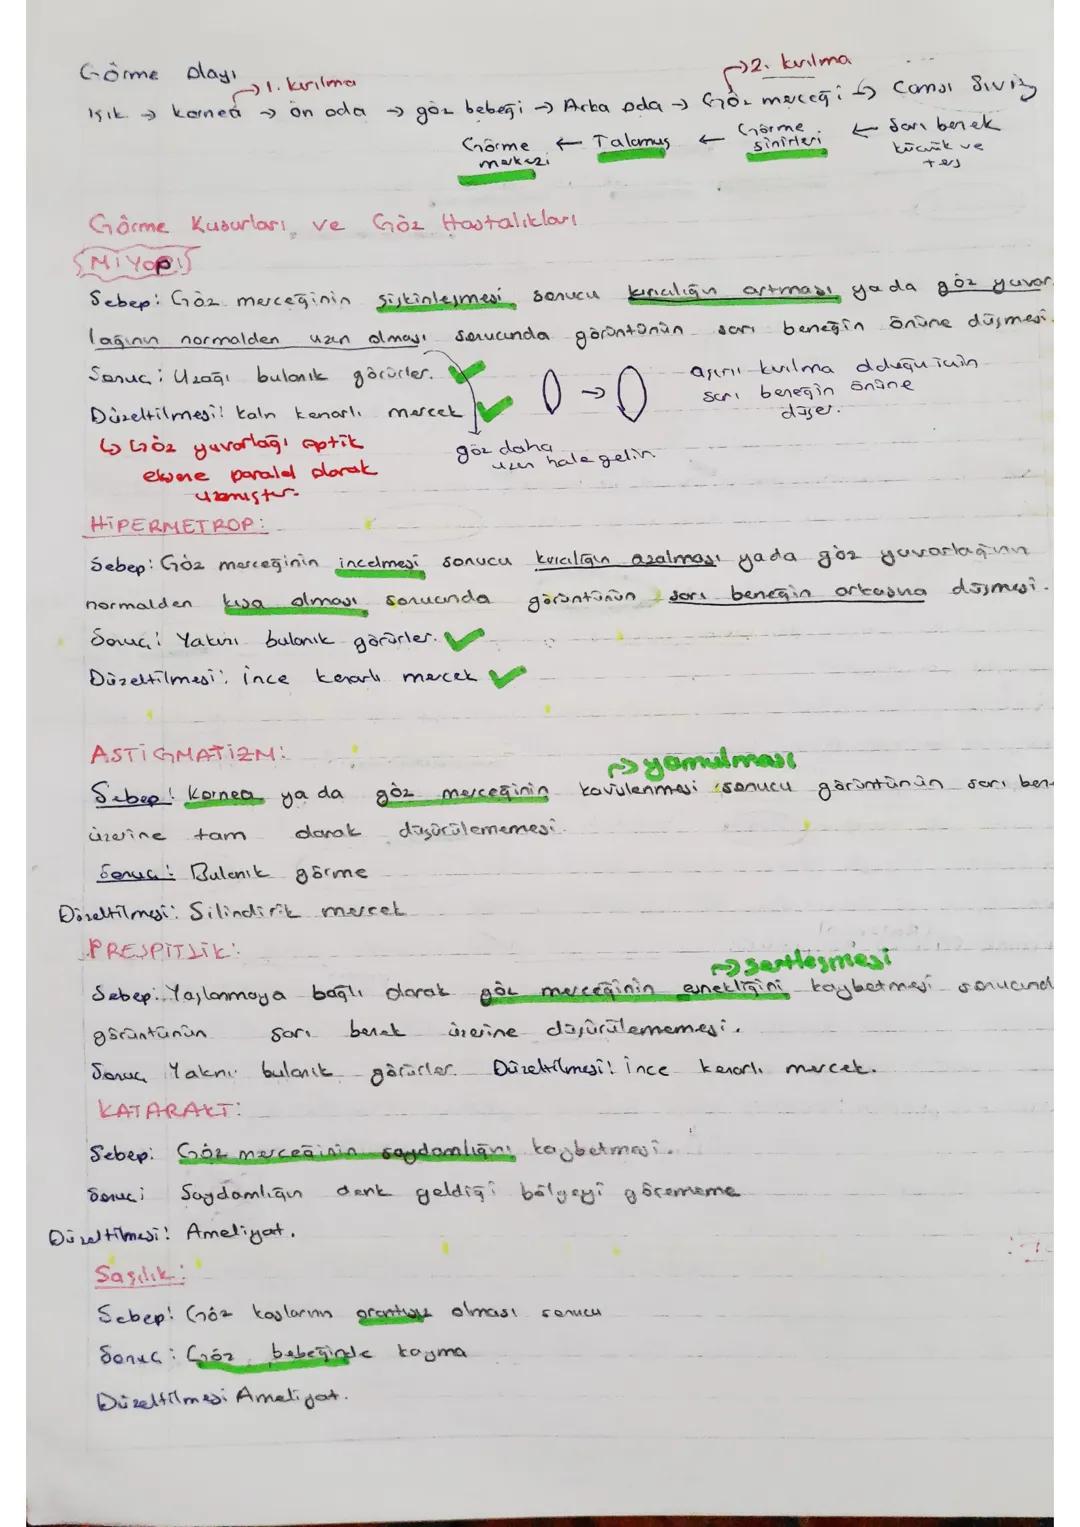 Görme Olayı
1. kırılma
2. kırılma
Işık → kornea → ön oda → göz bebeği → Arka oda → Göz merceği → Camsı Sıvı
Görme merkezi ← Talamus ← Görme sinirleri ← Sarı benek küçük ve ters
Görme Kusurları ve Göz Hastalıkları
MİYOP:
Sebep: Göz merceğinin şişkinleşmesi sonucu kırıcılığın artması ya da göz yuvar
lağının normalden uzun olması sonucunda görüntünün sarı beneğin önüne düşmesi.
Sonuç: Uzağı bulanık görürler.
Düzeltilmesi: Kalın kenarlı mercek
aşırı kırılma olduğu için
sarı beneğin önüne
düşer.
göz daha
uzun hale gelir.
↳ Göz yuvarlağı optik
eksene paralel olarak
uzamıştır.
HİPERMETROP:
Sebep: Göz merceğinin incelmesi sonucu kırıcılığın azalması ya da göz yuvarlağının
normalden kısa olması sonucunda görüntünün sarı beneğin arkasına düşmesi.
Sonuç: Yakını bulanık görürler.
Düzeltilmesi: İnce kenarlı mercek
ASTİGMATİZM:
→ yamulması
Sebep: Kornea ya da göz merceğinin kavislenmesi sonucu görüntünün sarı ben
üzerine tam olarak düşürülememesi.
Sonuç: Bulanık görme
Düzeltilmesi: Silindirik mercek
PRESPİTLİK:
→ sertleşmesi
Sebep: Yaşlanmaya bağlı olarak göz merceğinin esnekliğini kaybetmesi sonucund
görüntünün sarı benek üzerine düşürülememesi.
Sonuç Yakını bulanık görürler. Düzeltilmesi: İnce kenarlı mercek.
KATARAKT:
Sebep: Göz merceğinin saydamlığını kaybetmesi.
Sonuç: Saydamlığın denk geldiği bölgeyi görememe
Düzeltilmesi: Ameliyat.
Şaşılık:
Sebep: Göz kaslarının orantısız olması sonucu
Sonuç: Göz bebeğinde kayma
Düzeltilmesi Ameliyat.